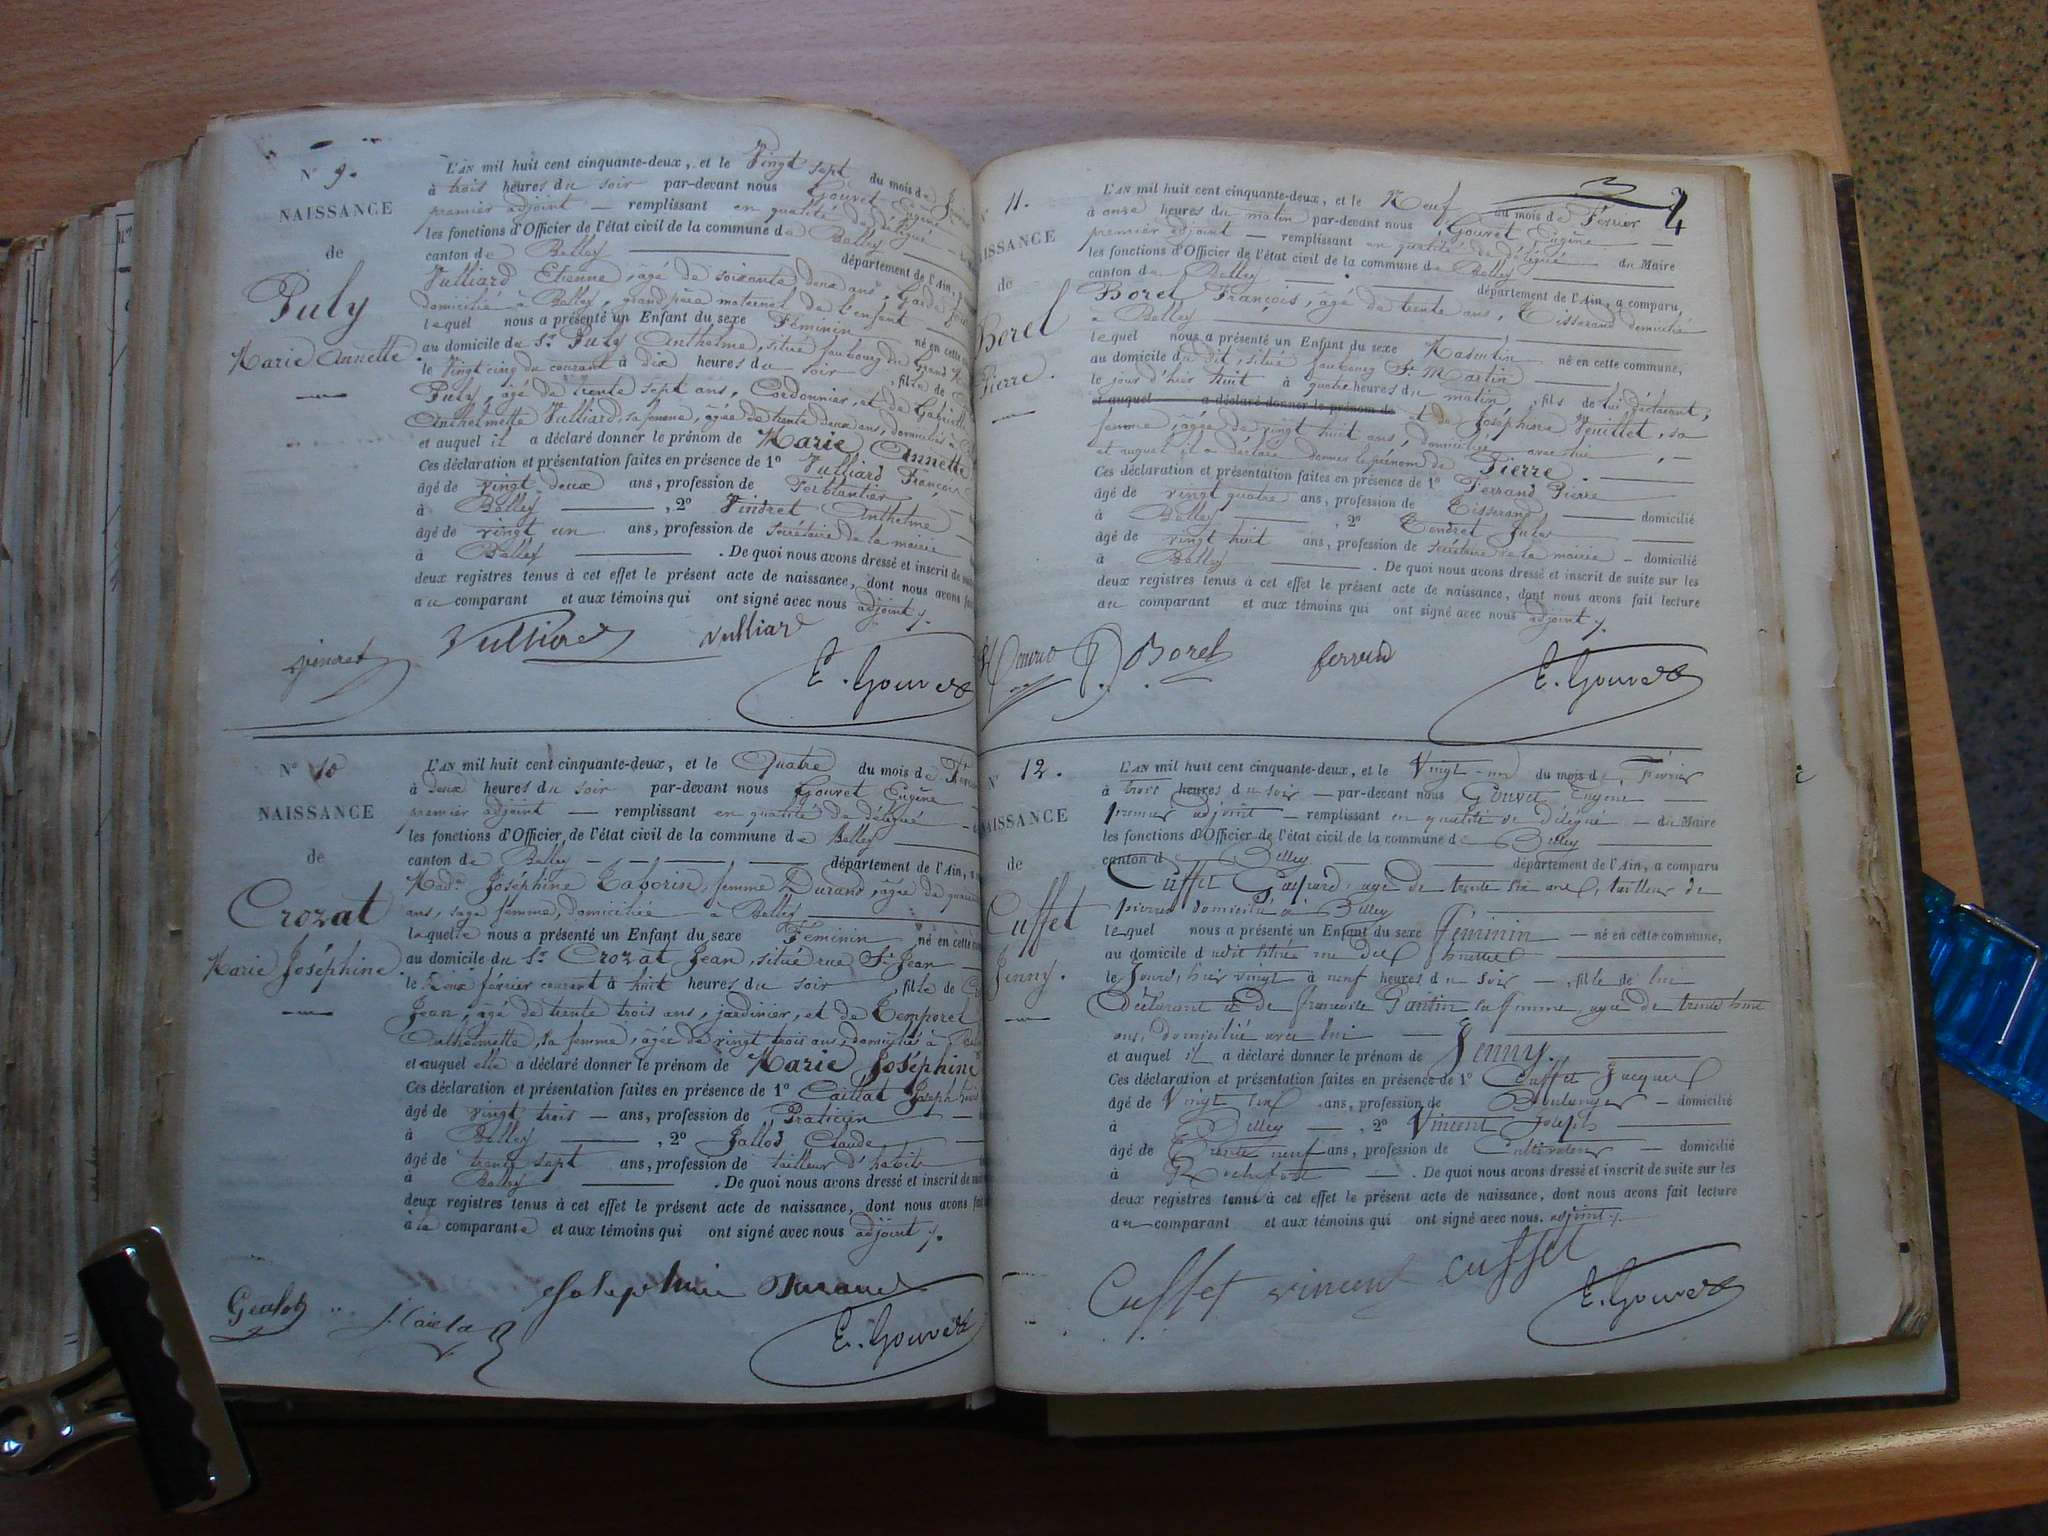 N° 9.
NAISSANCE
de
Puly
Marie Annette
L'AN mil huit cent cinquante-deux, et le Vingt sept du mois de
à trois heures du soir par-devant nous Gouvet Eugène
premier adjoint — remplissant en qualité de délégué
les fonctions d'Officier de l'état civil de la commune de Belley
canton de Belley département de l'Ain,
Vulliard Etienne, âgé de soixante deux ans, Garde
domicilié à Belley, grand père maternel de l'enfant
lequel nous a présenté un Enfant du sexe Féminin né en cette
au domicile du Sr. Puly Anthelme, situé faubourg du Grand
le Vingt cinq du courant à dix heures du soir, fille de
Puly, âgé de trente sept ans, Cordonnier, et de
Anthelmette Vulliard, sa femme, âgée de trente deux ans, domiciliés à
et auquel il a déclaré donner le prénom de Marie Annette
Ces déclaration et présentation faites en présence de 1° Vulliard François
âgé de vingt deux ans, profession de Ferblantier
à Belley, 2° Vindret Anthelme
âgé de vingt un ans, profession de secrétaire de la mairie
à Belley. De quoi nous avons dressé et inscrit de
deux registres tenus à cet effet le présent acte de naissance, dont nous avons
au comparant et aux témoins qui ont signé avec nous adjoint
Vulliard Vulliard
E. Gouvet
N° 10
NAISSANCE
de
Crozat
Marie Joséphine
L'AN mil huit cent cinquante-deux, et le Quatre du mois de
à deux heures du soir par-devant nous Gouvet Eugène
premier adjoint — remplissant en qualité de délégué
les fonctions d'Officier de l'état civil de la commune de Belley
canton de Belley département de l'Ain,
Joséphine Taborin, femme Durand, âgée de
ans, sage femme, domiciliée à Belley
laquelle nous a présenté un Enfant du sexe Féminin né en cette
au domicile du Sr. Crozat Jean, situé rue St. Jean
le deux février courant à huit heures du soir, fille de
Jean, âgé de trente trois ans, jardinier, et de Temporel
Anthelmette, sa femme, âgée de vingt trois ans, domiciliés à
et auquel elle a déclaré donner le prénom de Marie Joséphine
Ces déclaration et présentation faites en présence de 1° Caillat Joseph
âgé de vingt trois ans, profession de Praticien
à Belley, 2° Jallod Claude
âgé de trente sept ans, profession de tailleur d'habits
à Belley. De quoi nous avons dressé et inscrit de
deux registres tenus à cet effet le présent acte de naissance, dont nous avons
à la comparante et aux témoins qui ont signé avec nous adjoint
Joséphine Durand
E. Gouvet
4
11.
de
Borel
Pierre.
L'AN mil huit cent cinquante-deux, et le Neuf du mois de Février
à onze heures du matin par-devant nous Gouvet Eugène
premier adjoint — remplissant en qualité de délégué du Maire
les fonctions d'Officier de l'état civil de la commune de Belley
canton de Belley département de l'Ain, a comparu,
Borel François, âgé de trente ans, Tisserand domicilié
à Belley
lequel nous a présenté un Enfant du sexe Masculin né en cette commune,
au domicile du dit, situé faubourg St. Martin
le jour d'hier huit à quatre heures du matin, fils de lui déclarant,
et auquel a déclaré donner le prénom de et de Joséphine Veuillet, sa
femme, âgée de vingt huit ans, domiciliée avec lui,
et auquel il a déclaré donner le prénom de Pierre.
Ces déclaration et présentation faites en présence de 1° Ferrand Pierre
âgé de vingt quatre ans, profession de Tisserand domicilié
à Belley, 2° Tendret Jules
âgé de vingt huit ans, profession de secrétaire de la mairie — domicilié
à Belley. De quoi nous avons dressé et inscrit de suite sur les
deux registres tenus à cet effet le présent acte de naissance, dont nous avons fait lecture
au comparant et aux témoins qui ont signé avec nous adjoint
Borel
E. Gouvet
N° 12.
NAISSANCE
de
Cuffet
Jenny.
L'AN mil huit cent cinquante-deux, et le Vingt-un du mois de février
à trois heures du soir — par-devant nous Gouvet Eugène
premier adjoint — remplissant en qualité de délégué — du Maire
les fonctions d'Officier de l'état civil de la commune de Belley
canton de Belley département de l'Ain, a comparu
Cuffet Gaspard, âgé de trente six ans, tailleur de
pierres domicilié à Belley
lequel nous a présenté un Enfant du sexe féminin — né en cette commune,
au domicile du dit situé rue
le jour d'hier vingt à neuf heures du soir —, fille de lui
déclarant et de Françoise Gantin sa femme, âgée de trente
ans, domiciliée avec lui
et auquel il a déclaré donner le prénom de Jenny.
Ces déclaration et présentation faites en présence de 1° Cuffet Jacques
âgé de vingt ans, profession de Boulanger — domicilié
à Belley, 2° Vincent Joseph
âgé de trente neuf ans, profession de Cultivateur — domicilié
à Rochefort. De quoi nous avons dressé et inscrit de suite sur les
deux registres tenus à cet effet le présent acte de naissance, dont nous avons fait lecture
au comparant et aux témoins qui ont signé avec nous. adjoint
Cuffet vincent cuffet
E. Gouvet